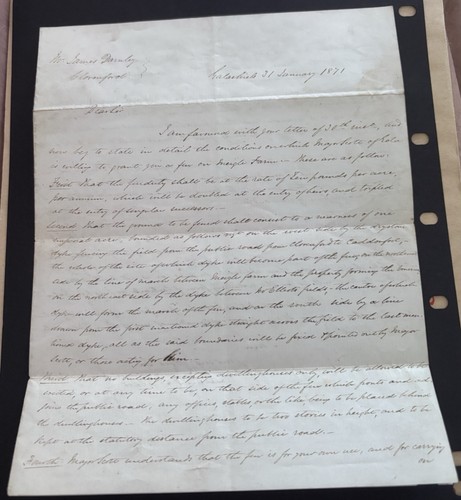 Mr James
Clovenfords
Galashiels 31 January 1871
Dear Sir
I am favoured with your letter of 30th inst, and
now beg to state in detail the conditions on which Major Scott of Gala
is willing to grant you a feu on Meigle Farm. These are as follow.
First That the feuduty shall be at the rate of ten pounds per acre,
per annum, which will be doubled at the entry of heirs, and tripled
at the entry of singular successors.
Second That the ground to be feued shall consist to a nearness of one
imperial acre, bounded as follows on the east side by the drystone
dyke fencing the field from the public road from Clovenfords to Caddonfoot,
the whole of the site of which dyke will become part of the feu; on the northwest
side by the line of march between Meigle farm and the property forming the
on the south west side by the dyke between fields the centre of which
dyke will form the march of the feu, and on the south side by a line
drawn from the first mentioned dyke straight across the field to the last men-
tioned dyke, all as the said boundaries will be fixed & pointed out by Major
Scott, or those acting for him.
Third That no buildings, excepting dwellinghouses only will be allowed to be
erected, or at any time to be, on that side of the feu which fronts and ad-
joins the public road, any offices, stables or the like being to be placed behind
the dwellinghouses. The dwellinghouses to be two stories in height, and to be
kept at the statutory distance from the public road.
Fourth Major Scott understands that the feu is for your own use, and for carrying
on